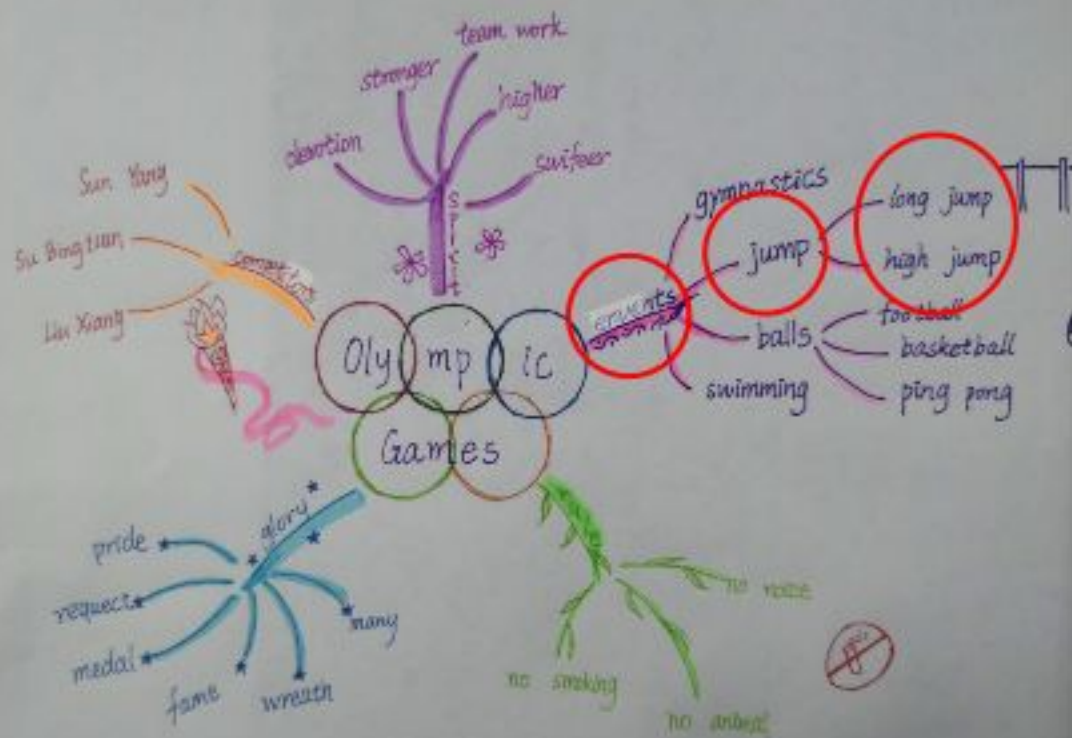 team work
stronger
higher
devotion
swifeer
spirit
Sun Yang
Su Bingtian
Liu Xiang
Oly mp ic
Games
gymnastics
jump
long jump
high jump
balls
football
basketball
ping pong
swimming
glory
pride
requect
medal
fame
wreath
many
no noize
no smoking
no animal